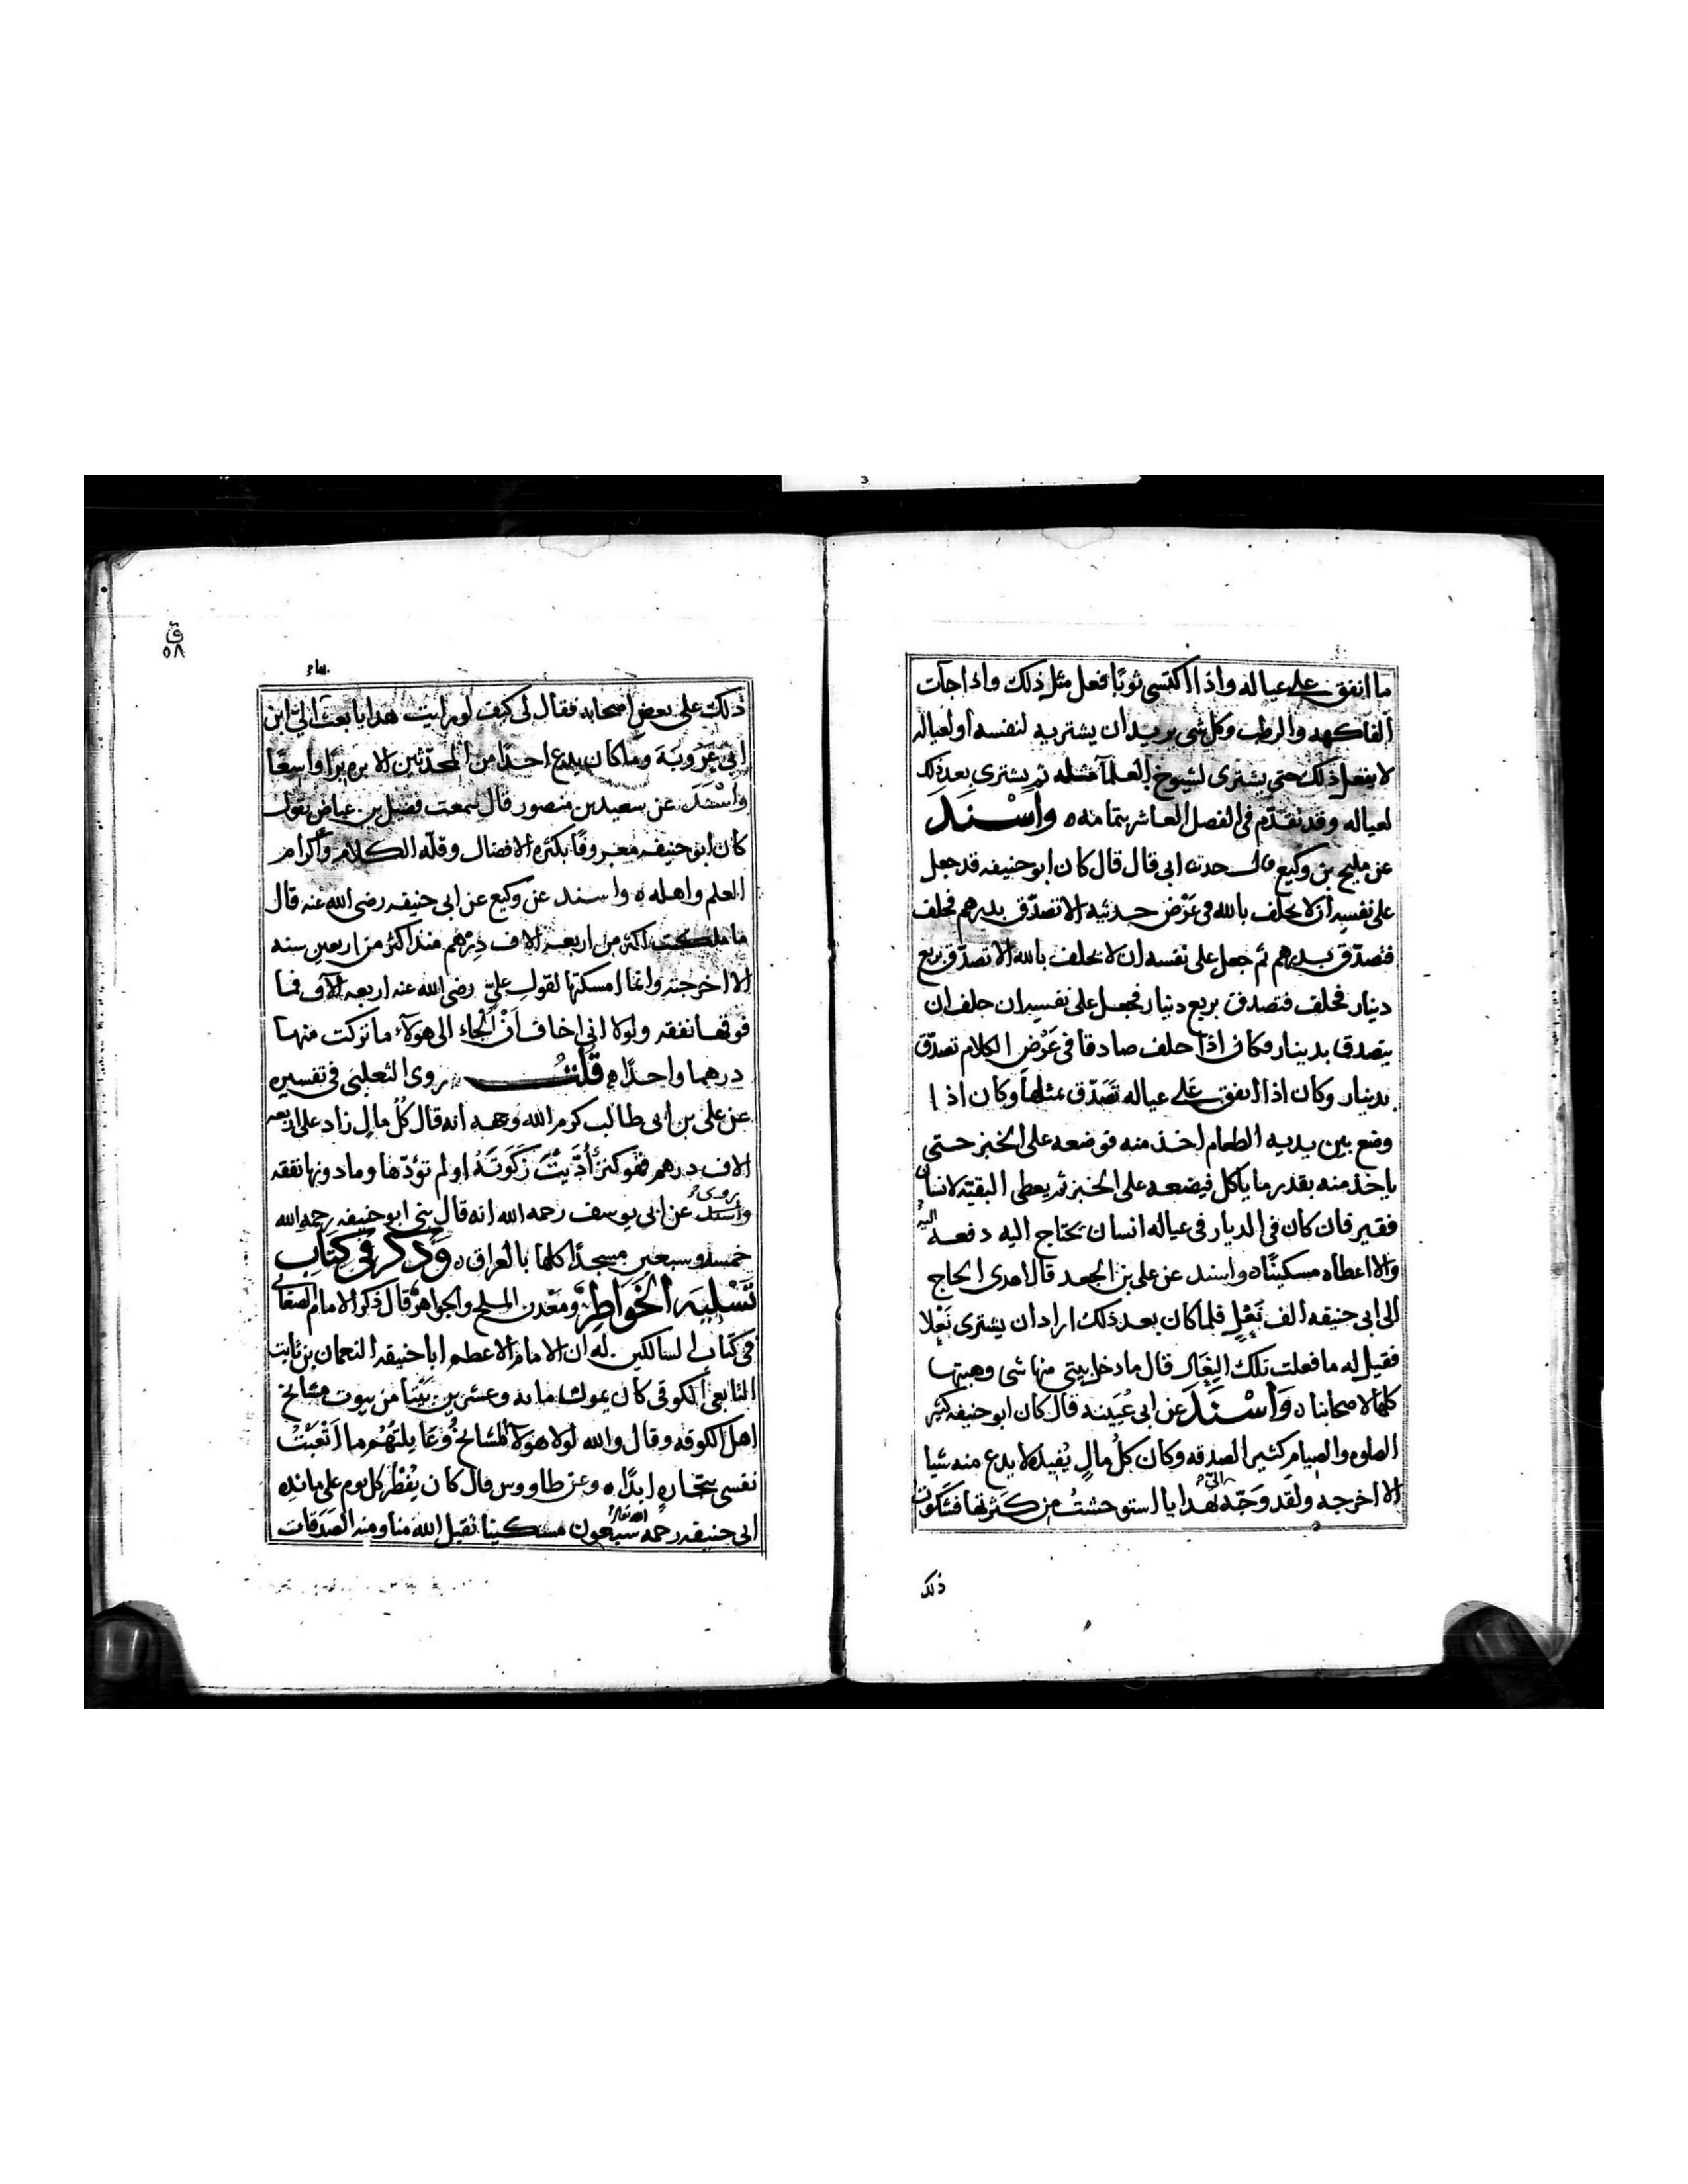 ما انفق على عياله واذا اكتسى ثوبًا فعل مثل ذلك واذا جآت
الفاكهه والرطب وكل شى يريد ان يشتريه لنفسه او لعياله
لا يفعل ذلك حتى يشترى لشيوخ العلمآ مثله ثم يشترى بعد ذلك
لعياله وقد تقدّم فى الفصل العاشر بتمامه ٥ واسْنَدَ
عن مليح بن وكيع قال حدثنا ابى قال قال كان ابو حنيفه قد جعل
على نفسه ان لا يحلف بالله فى عَرْض حديثه الا تصدّق بدرهم فحلف
فتصدّق بدرهم ثم جعل على نفسه ان لا يحلف بالله الا تصدّق بربع
دينار فحلف فتصدق بربع دينار فجعل على نفسه ان حلف ان
يتصدق بدينار وكان اذا حلف صادقا فى عَرْض الكلام تصدّق
بدينار وكان اذا انفق على عياله تَصَدّق بمثلها وكان اذا
وضع بين يديه الطعام اخذ منه فوضعه على الخبز حتى
ياخذ منه بقدر ما ياكل فيضعه على الخبز ثم يعطى البقيّة لانسان
فقير فان كان فى الدار فى عياله انسان يحتاج اليه دفعه اليه
والا اعطاه مسكينًا ٥ واسند عن على بن الجعد قال اهدى الحاج
الى ابى حنيفه الف نَعْلٍ فلما كان بعد ذلك اراد ان يشترى نَعْلا
فقيل له ما فعلت تلك النِعَال قال ما دخل بيتى منها شى وهبتها
كلها لاصحابنا ٥ وَاسْنَدَ عن ابى عُيَينه قال كان ابو حنيفه كثير
الصلوه والصيام كثير الصدقه وكان كلُ مالٍ يُفيده لا يدع منه شيا
الا اخرجه ولقد وَجّه الىّ لهدايا استوحشتُ من كَثرتها فشكوت
ذلك
ق
٥٨
ذلك على بعض اصحابه فقال لى كيف لو رايت هدايا بعث الىّ ابن
ابى عَرُوبَة وما كان يدع احدًا من المحدّثين الا بره برًا واسعًا
وَاسْنَدَ عن سعيد بن منصور قال سمعت فضيل بن عياض يقول
كان ابو حنيفه معروفًا بكثره الافضال وقلّه الكلام واكرام
العلم واهله ٥ واسند عن وكيع عن ابى حنيفه رضى الله عنه قال
ما ملكت اكثر من اربعه الاف دِرْهم منذ اكثر من اربعين سنه
الا اخرجته وانما امسكتها لقول علىّ رضى الله عنه اربعه الآف فما
فوقها نفقه ولولا انى اخاف اَنْ اَلجاء الى هؤلآء ما تركت منها
درهما واحدًا ٥ قُلْتُ روى الثعلبى فى تفسيره
عن على بن ابى طالب كرم الله وجهه انه قال كُل مالٍ زاد على اربعه
الاف درهم فهو كنز أُدّيَتْ زكوتَهُ او لم تؤدّها وما دونها نفقه
واسند يروى عن ابى يوسف رحمه الله انه قال بنى ابو حنيفه رحمه الله
خمسه وسبعين مسجدًا كلها بالعراق ٥ وَذكر فى كتَابِ
تَسْلِيَه الخَوَاطِرْ ومَعْدن الملح والجواهر قال ذكر الامام الصغانى
فى كتاب السالكين له ان الامام الاعظم ابا حنيفه النعمان بن ثابت
التابعى الكوفى كان يمون مايه وعشرين بَيْتًا من بيوت مشايخ
اهل الكوفه وقال والله لولا هولآ المشايخ وعَايلتُهُم ما اَتْعَبْتُ
نفسى بتجاره ابدًا ٥ وعن طاووس قال كان يُفْطرُ كل يوم على مايده
ابى حنيفه رحمه الله تعالى سَبْعون مسكينا تقبل الله منا ومنه الصَدَقات